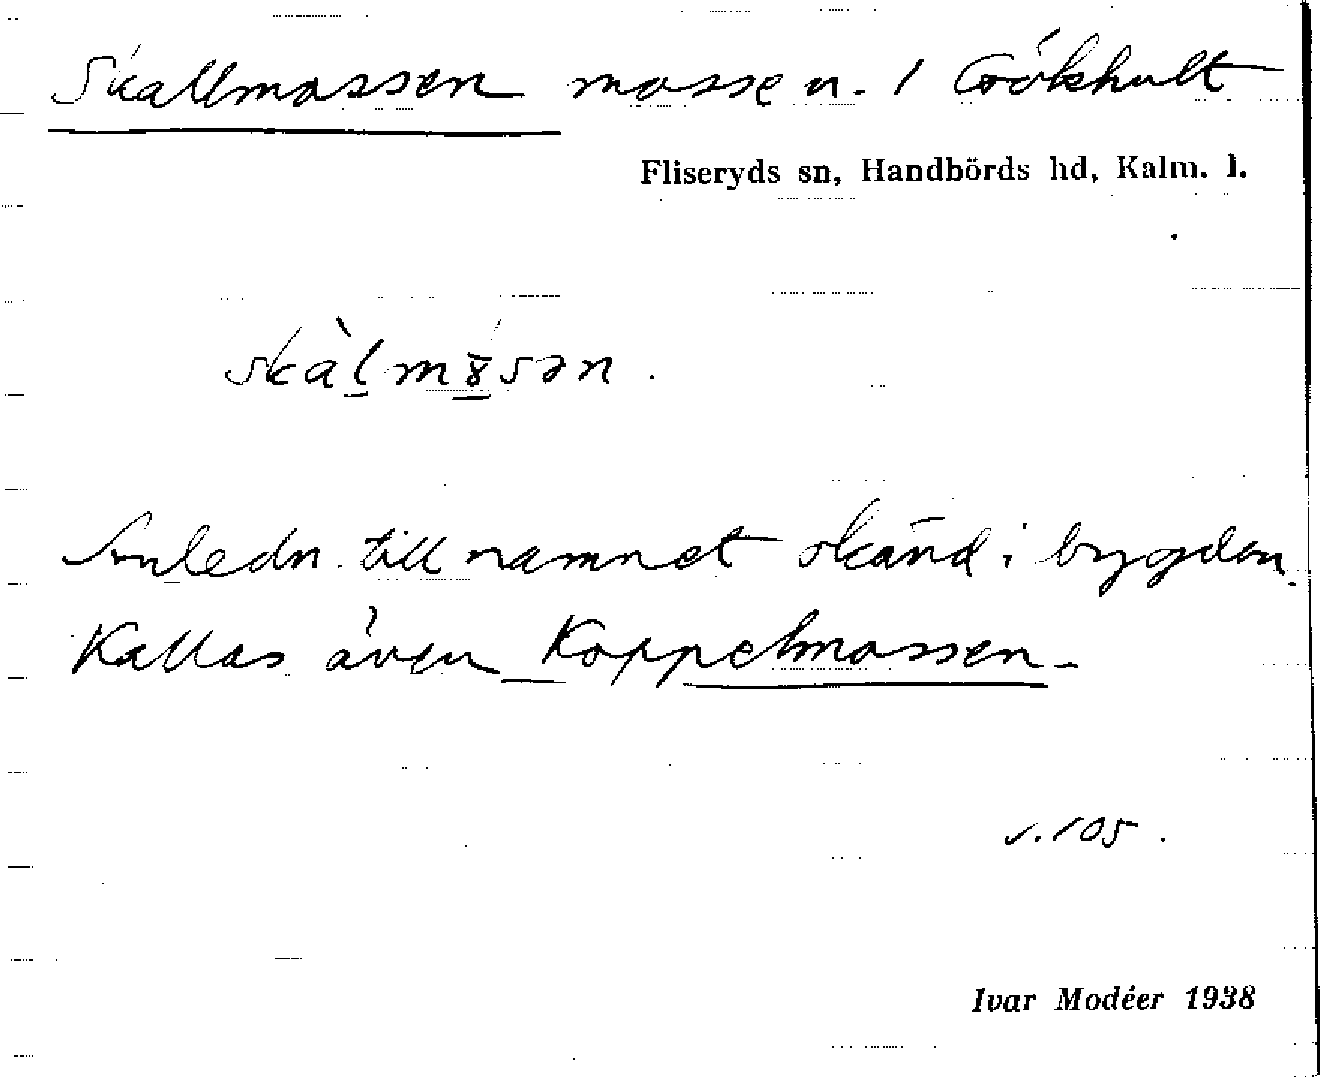 Skallmossen mosse n. 1 Gökhult
Fliseryds sn, Handbörds hd, Kalm. l.
skàlmɤsən.
Anledn. till namnet okänd i bygden.
Kallas även Koppelmossen.
s. 105.
Ivar Modéer 1938